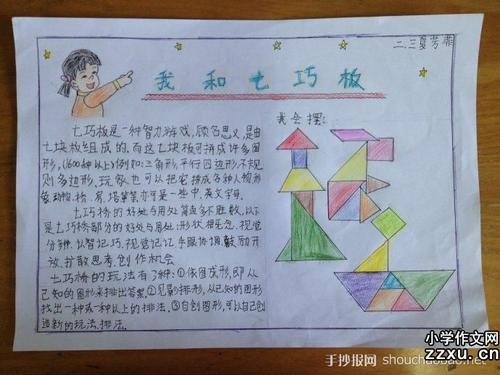 二.三夏芳菲
我和七巧板
七巧板是一种智力游戏,顾名思义,是由
七块板组成的.而这七块板可拼成许多图
形,(1600种以上)例如:三角形,平行四边形,不规
则多边形,玩家也可以把它拼成各种人物,形
象,动物,桥,房,塔等等,亦可是一些中,英文字母.
七巧桥的好处与用处简直多不胜数,以下
是七巧桥部分的好处与用处:形状概念,视觉
分辨,认智记巧,视觉记忆,手眼协调,鼓励开
放,扩散思考,创作机会
七巧桥的玩法有3种:①依图成形,即从
已知的图形来排出答案.②见影排形,从已知的图形
找出一种或一种以上的排法.③自创图形,可以自己创
造新的玩法,排法.
我会摆:
小学作文网
zzxu.cn
手抄报网 shouchaobao.net